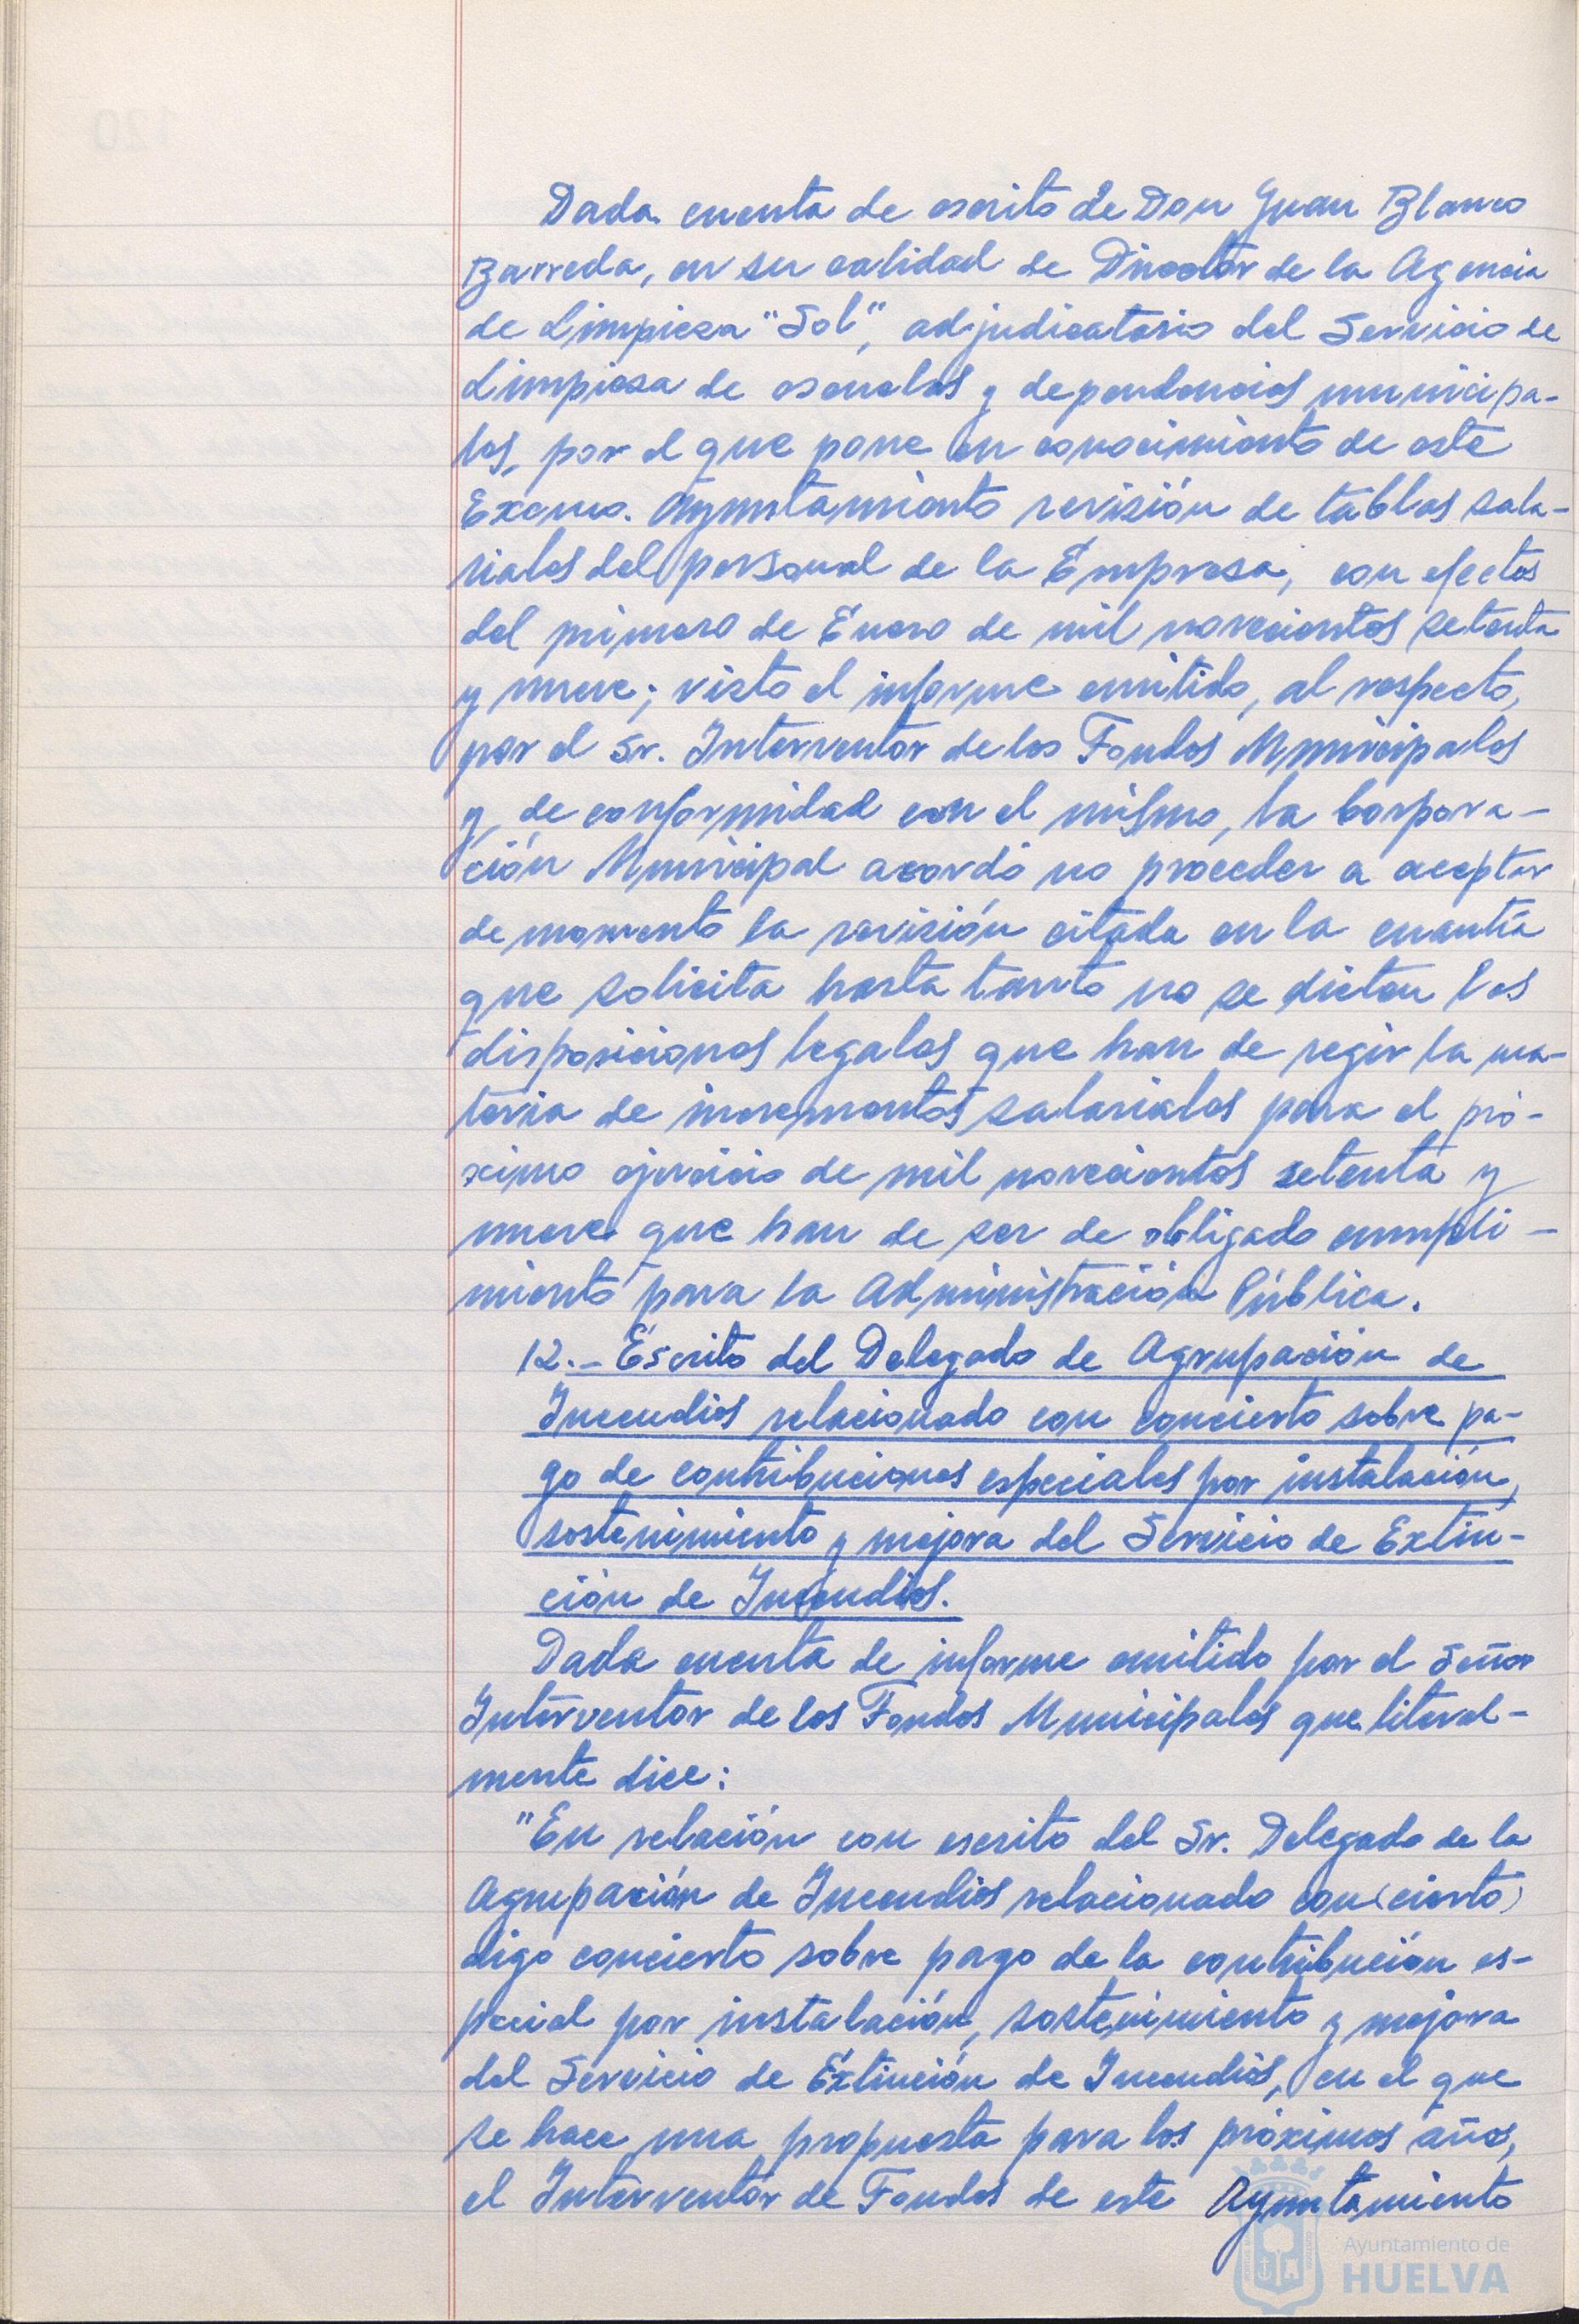 Dada cuenta de escrito de Don Juan Blanco
Barreda, en su calidad de Director de la Agencia
de Limpieza "Sol", adjudicatario del Servicio de
Limpieza de escuelas y dependencias municipa-
les, por el que pone en conocimiento de este
Excmo. Ayuntamiento revisión de tablas sala-
riales del personal de la Empresa, con efectos
del primero de Enero de mil novecientos setenta
y nueve; visto el informe emitido, al respecto,
por el Sr. Interventor de los Fondos Municipales
y, de conformidad con el mismo, la Corpora-
ción Municipal acordó no proceder a aceptar
de momento la revisión citada en la cuantía
que solicita hasta tanto no se dicten las
disposiciones legales que han de regir la ma-
teria de incrementos salariales para el pró-
ximo ejercicio de mil novecientos setenta y
nueve que han de ser de obligado cumpli-
miento para la Administración Pública.
12.- Escrito del Delegado de Agrupación de
Incendios relacionado con concierto sobre pa-
go de contribuciones especiales por instalación,
sostenimiento y mejora del Servicio de Extin-
ción de Incendios.
Dada cuenta de informe emitido por el Señor
Interventor de los Fondos Municipales que literal-
mente dice:
"En relación con escrito del Sr. Delegado de la
Agrupación de Incendios relacionado con (cierto)
digo concierto sobre pago de la contribución es-
pecial por instalación, sostenimiento y mejora
del Servicio de Extinción de Incendios, en el que
se hace una propuesta para los próximos años,
el Interventor de Fondos de este Ayuntamiento
Ayuntamiento de
HUELVA
120